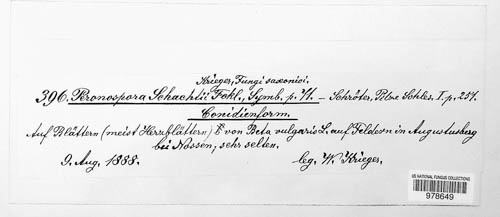 Krieger, Fungi saxonici.
396. Peronospora Schachtii Fckl., Symb. p. 71. – Schröter, Pilze Schles. I. p. 257.
Conidienform.
Auf Blättern (meist Herzblättern) v. von Beta vulgaris L. auf Feldern in Augustusberg
bei Nossen, sehr selten.
9. Aug. 1888. leg. W. Krieger.
US NATIONAL FUNGUS COLLECTIONS
978649